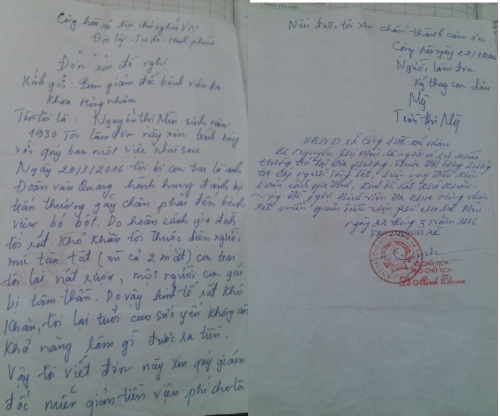 Cộng hòa xã hội chủ nghĩa VN
Độc lập - Tự do - Hạnh phúc
Đơn xin đề nghị
Kính gửi: Ban giám đốc bệnh viện đa
khoa Hưng Nhân
Tên tôi là: Nguyễn Thị Nhú sinh năm
1930 Tôi làm đơn này xin trình bày
với quý ban một việc như sau.
Ngày 20/3/2016 tôi bị con trai là anh
Doãn văn Quang hành hung đánh bị
trấn thương gãy chân phải đến bệnh
viện bó bột. Do hoàn cảnh gia đình
tôi rất khó khăn tôi thuộc diện người
mù tàn tật (mù cả 2 mắt) con trai
tôi lại nát rượu, một người con gái
bị tâm thần. Do vậy kinh tế rất khó
khăn, tôi lại tuổi cao sức yếu không còn
khả năng làm gì được ra tiền.
Vậy tôi viết đơn này xin quý giám
đốc miễn giảm tiền viện phí cho tôi
Nếu được tôi xin chân thành cảm ơn
Cộng hòa ngày 22/3/2016
Người làm đơn
Ký thay con dâu
Mỹ
Trần Thị Mỹ
UBND xã Cộng hòa xác nhận
Bà Nguyễn Thị Nhú là
tại địa phương. Thuộc đối tượng
người Tàn tật
hoàn cảnh gia đình, kinh tế rất khó khăn.
đề nghị Bệnh viện Đa khoa Hưng Nhân
xét miễn giảm Tiền viện phí cho bà Nhú
ngày 22 tháng 3 năm 2016
CHỦ TỊCH
PHÓ CHỦ TỊCH